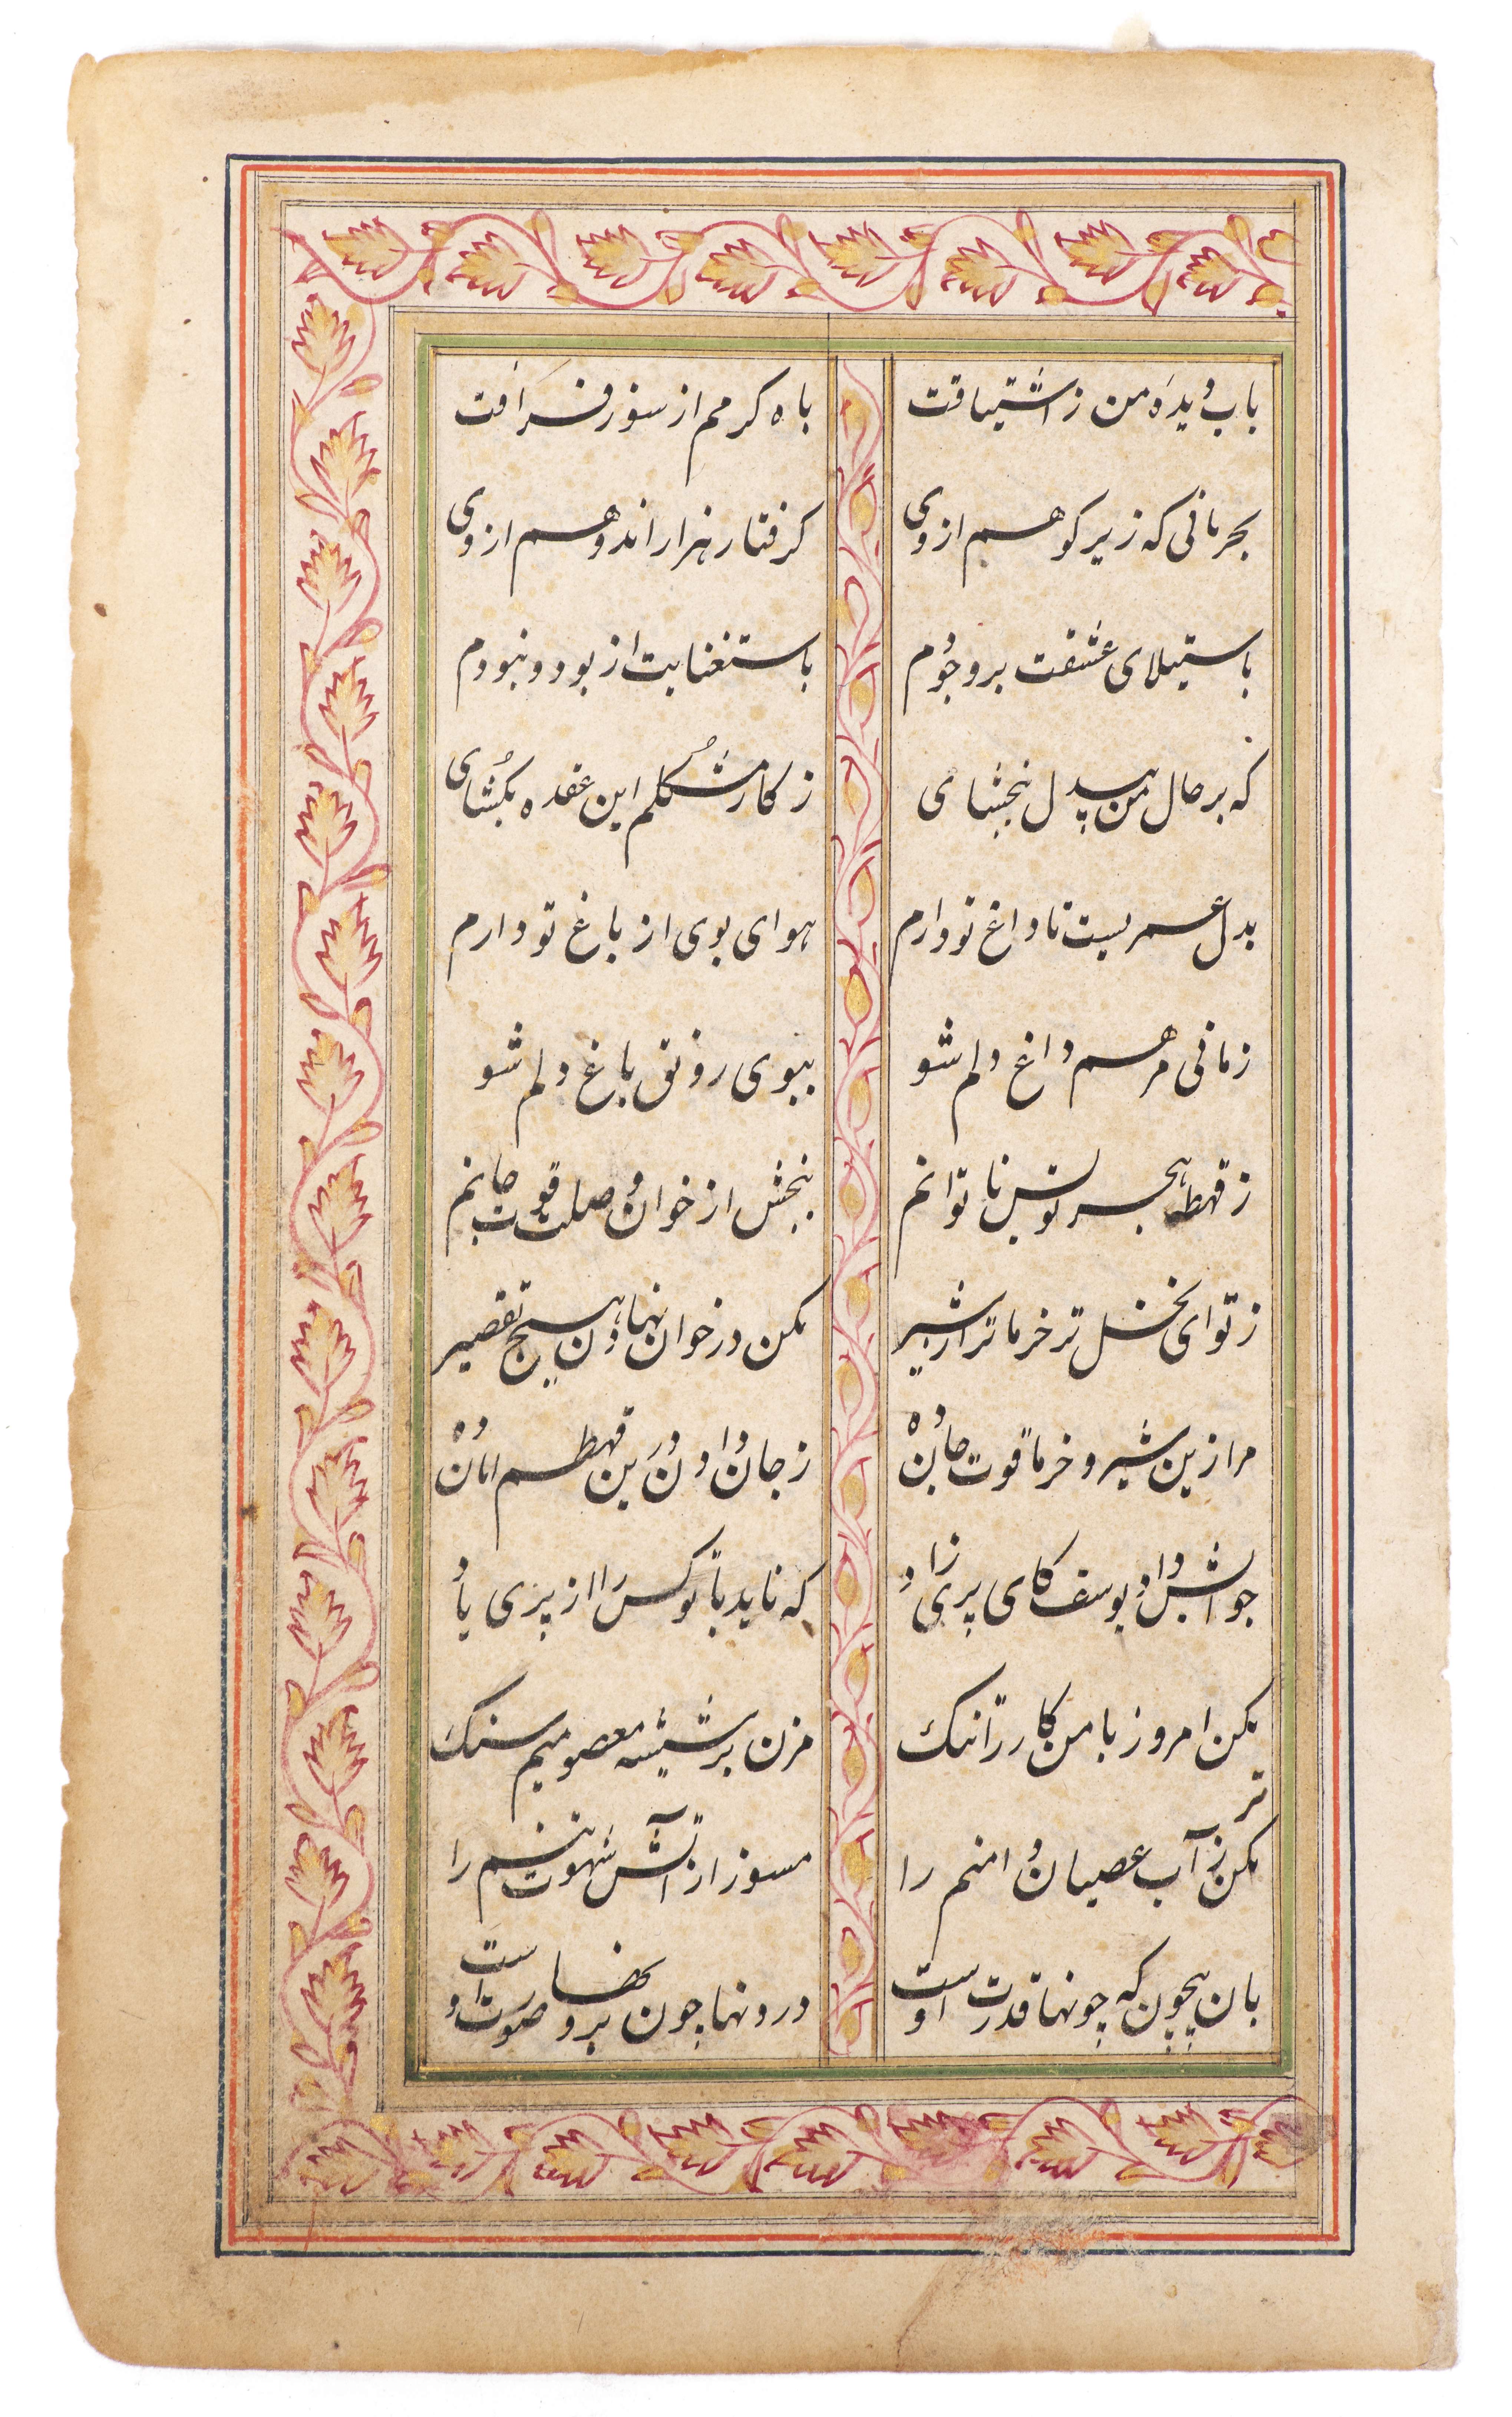 بآب دیده من ز اشتیاقت
بآه کرمم از سوز فراقت
بحرمانی که زیر کوهم از وی
کرفتار هزار اندوهم از وی
باستیلای عشقت بر وجودم
باستغنایت از بود و نبودم
که بر حال من بیدل ببخشای
ز کار مشکلم این عقده بکشای
بدل عمریست تا داغ تو دارم
هوای بوی از باغ تو دارم
زمانی مرهم داغ دلم شو
ببوی رونق باغ دلم شو
ز قهط هجر تو بس ناتوانم
ببخش از خوان وصلت قوت جانم
ز تو ای نخل تر خرما تر از شیر
مکن در خوان نهادن هیچ تقصیر
مرا زین شیر و خرما قوت جان ده
ز جان دادن درین قهطم امان ده
جوابش داد یوسف کای پریزاد
که ناید با تو کس را از پری یاد
مکن امروز با من کار را تنک
مزن بر شیشه معصومیم سنک
مکن تر ز آب عصیان دامنم را
مسوز از آتش شهوت تنم را
بان بیچون که چونها قدرت اوست
درونها چون برونها صورت اوست